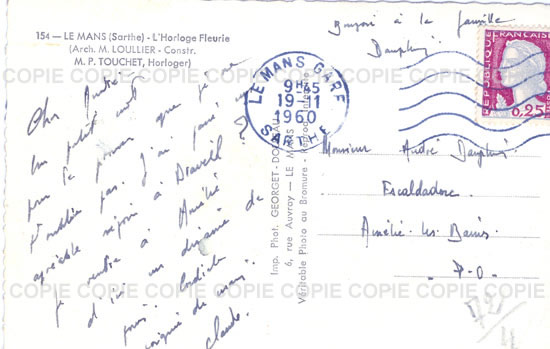 154 — LE MANS (Sarthe) - L'Horloge Fleurie
(Arch. M. LOULLIER - Constr.
M. P. TOUCHET, Horloger)
Bonjour à la famille
Dauphin
LE MANS GARE
9H45
19-11
1960
SARTHE
REPUBLIQUE FRANÇAISE
0,25
Cher André
Un petit mot
pour te prouver que je ne
t'oublie pas. J'ai passé un
agréable séjour à Draveil
je rentre à Amélie
d'ici une dizaine de
jours. Cordiale
poignée de main
Claude.
Imp. Phot. GEORGET-
6, rue Auvray — LE MANS
Véritable Photo au Bromure - Reproduction
Monsieur André Dauphin
Escaldadore
Amélie-les-Bains
P-O-
COPIE COPIE COPIE COPIE COPIE COPIE COPIE
COPIE COPIE COPIE COPIE COPIE COPIE COPIE
COPIE COPIE COPIE COPIE COPIE COPIE COPIE